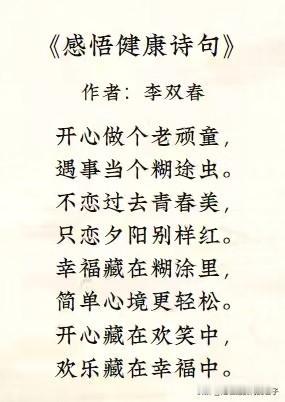 《感悟健康诗句》
作者：李双春
开心做个老顽童，
遇事当个糊途虫。
不恋过去青春美，
只恋夕阳别样红。
幸福藏在糊涂里，
简单心境更轻松。
开心藏在欢笑中，
欢乐藏在幸福中。